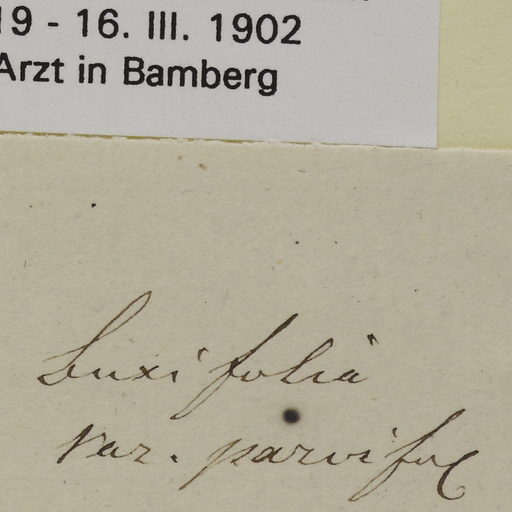 19 - 16. III. 1902
Arzt in Bamberg
buxifolia
var. parvifol